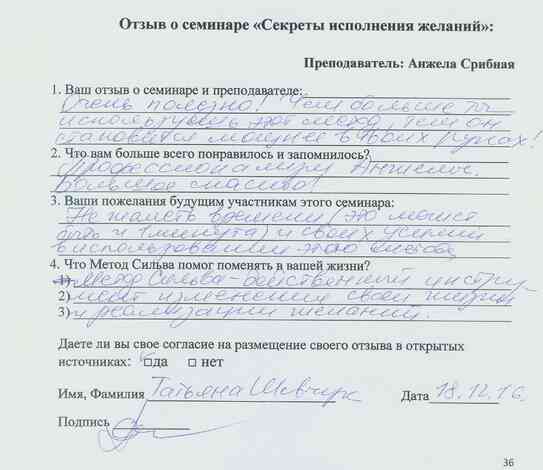 Отзыв о семинаре «Секреты исполнения желаний»:
Преподаватель: Анжела Срибная
1. Ваш отзыв о семинаре и преподавателе:
Очень полезно! Чем больше ты
используешь этот метод, тем он
становится мощнее в твоих руках!
2. Что вам больше всего понравилось и запомнилось?
Профессионализм Анжелы.
Большое спасибо!
3. Ваши пожелания будущим участникам этого семинара:
Не жалеть времени (это может
быть и 1 минута) и своих усилий
в использовании этого
4. Что Метод Сильва помог поменять в вашей жизни?
1) Метод Сильва - действенный инстру-
2) мент изменения своей жизни
3) и реализации желаний.
Даете ли вы свое согласие на размещение своего отзыва в открытых
источниках: □да □ нет
Имя, Фамилия Татьяна Шевчук Дата 18.12.16.
Подпись
36